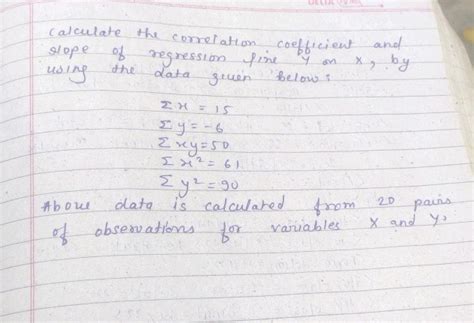 Calculate the correlation coefficient and
slope of regression line Y on X, by
using the data given below:
Σx = 15
Σy = -6
Σxy = 50
Σx² = 61
Σy² = 90
Above data is calculated from 20 pairs
of observations for variables X and Y.